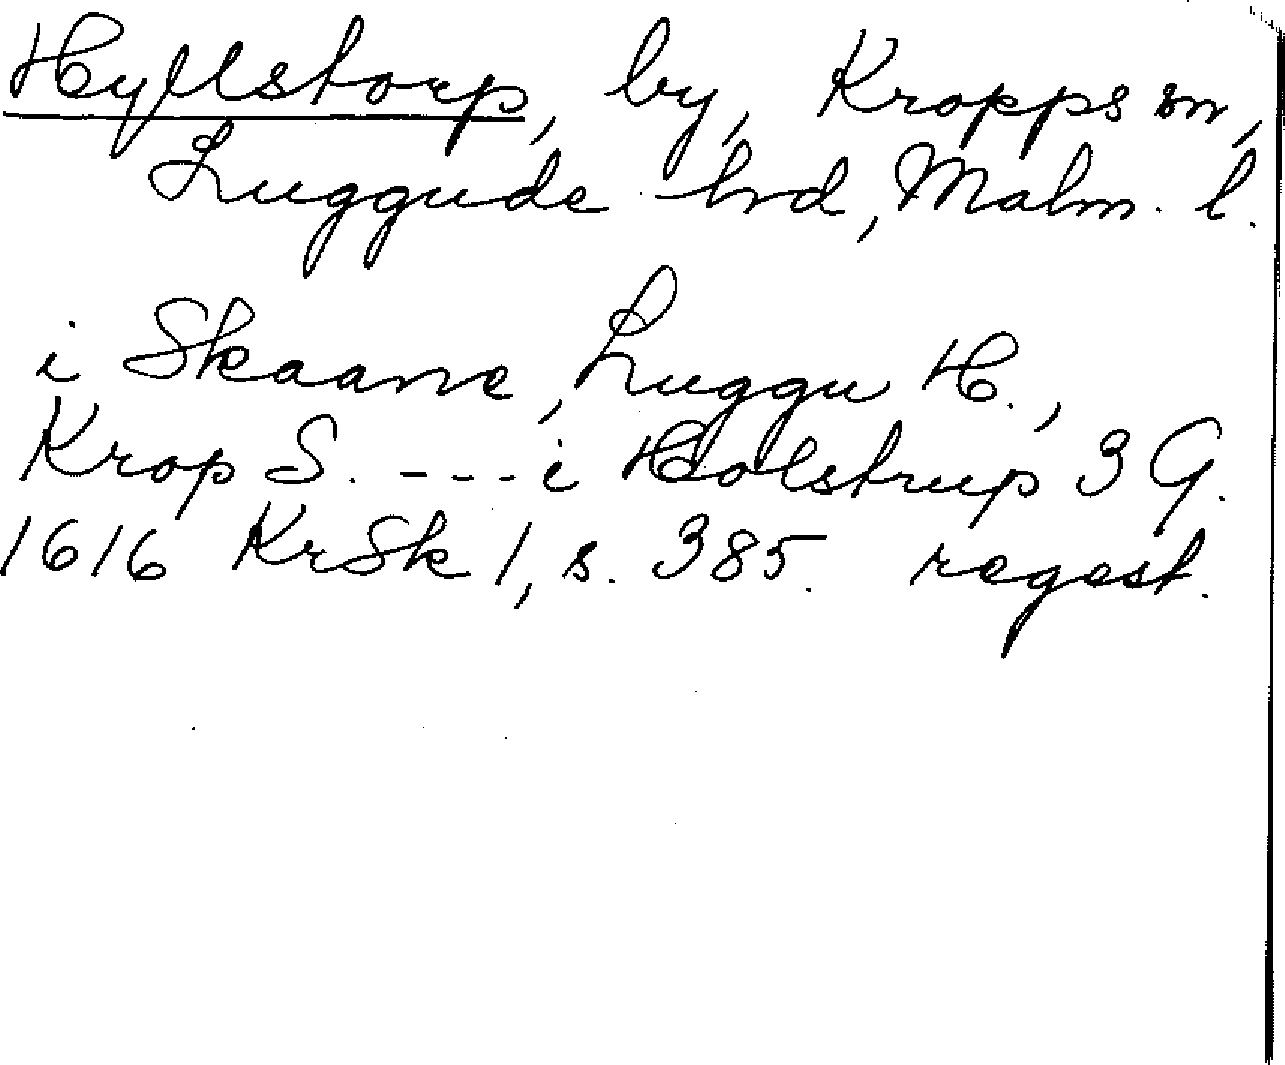 Hyllstorp, by, Kropps sn,
Luggude hrd, Malm. l.
i Skaane, Luggu H.,
Krop S. ---i Holstrup 3 G.
1616 KrSk 1, s. 385. regest.